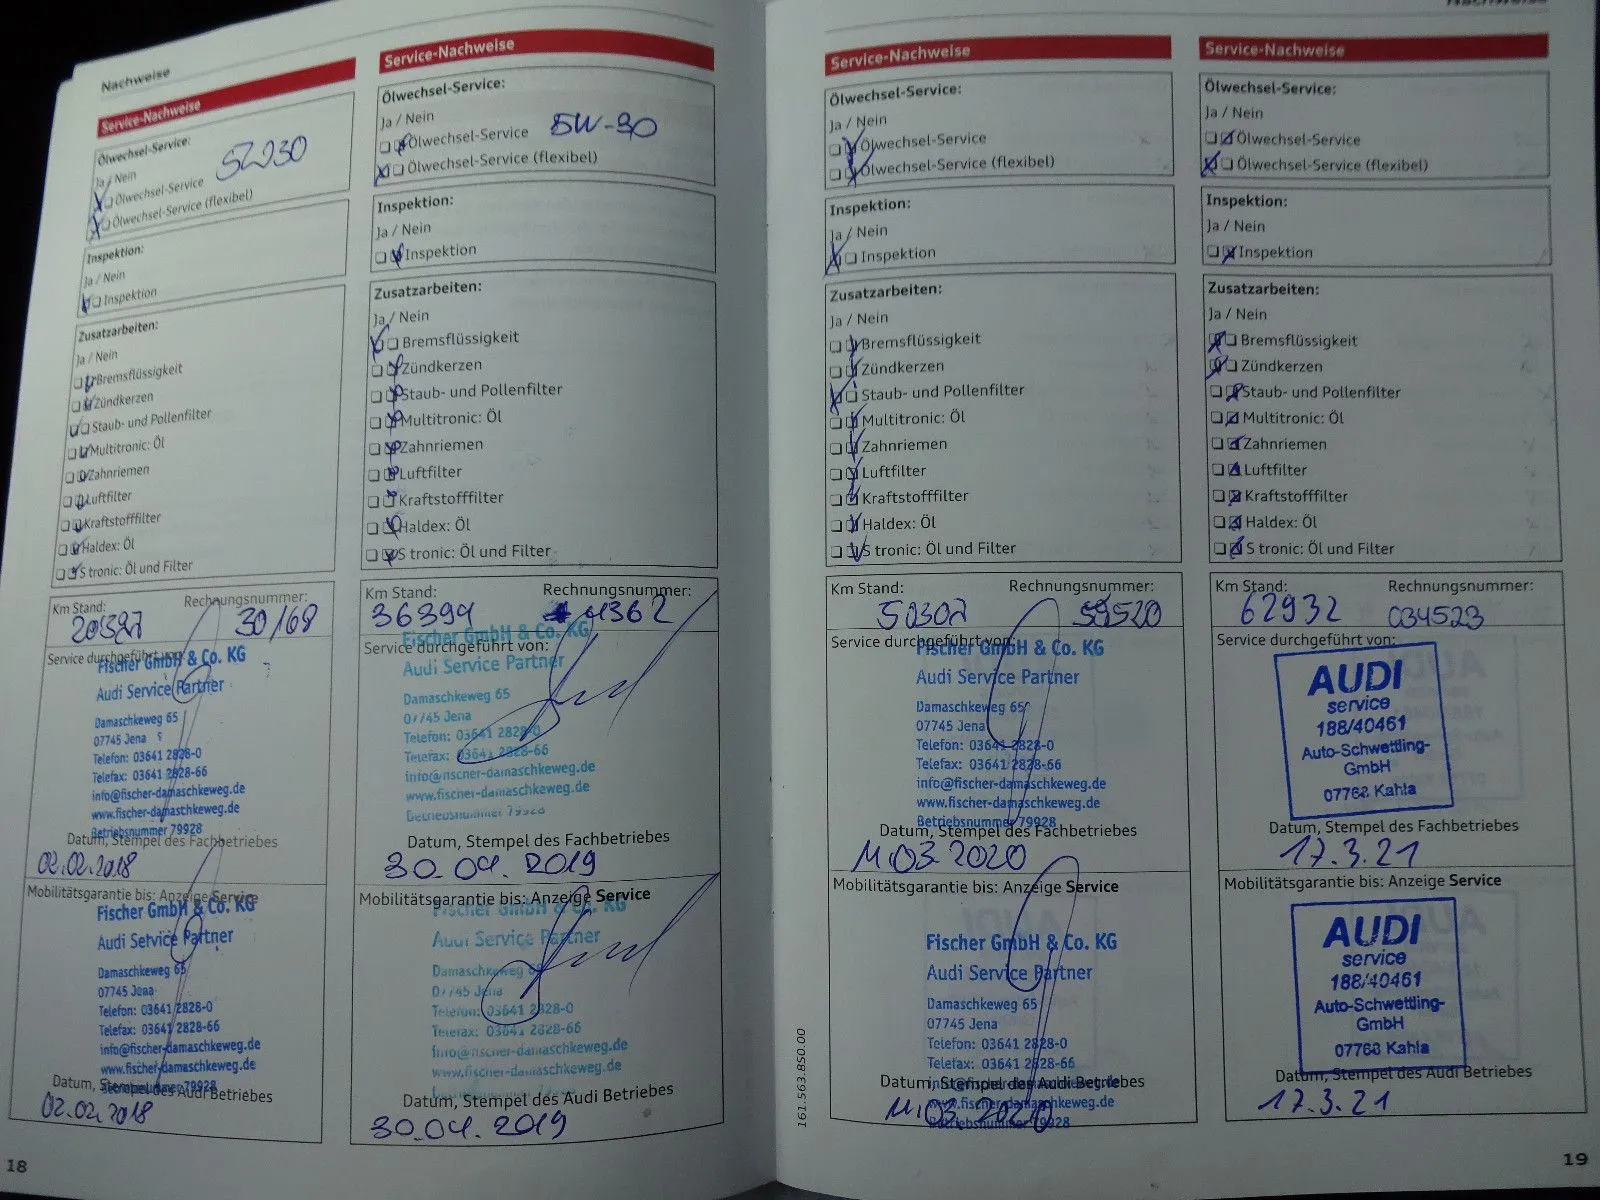 Nachweise
Service-Nachweise
Ölwechsel-Service:
Ja / Nein
5W30
Ölwechsel-Service
Ölwechsel-Service (flexibel)
Inspektion:
Ja / Nein
Inspektion
Zusatzarbeiten:
Ja / Nein
Bremsflüssigkeit
Zündkerzen
Staub- und Pollenfilter
Multitronic: Öl
Zahnriemen
Luftfilter
Kraftstofffilter
Haldex: Öl
S tronic: Öl und Filter
Km Stand:
Rechnungsnummer:
30/168
Service durchgeführt von:
Fischer GmbH & Co. KG
Audi Service Partner
Damaschkeweg 65
07745 Jena
Telefon: 03641 2828-0
Telefax: 03641 2828-66
info@fischer-damaschkeweg.de
www.fischer-damaschkeweg.de
Betriebsnummer 79928
Datum, Stempel des Fachbetriebes
02.02.2018
Mobilitätsgarantie bis: Anzeige Service
Fischer GmbH & Co. KG
Audi Service Partner
Damaschkeweg 65
07745 Jena
Telefon: 03641 2828-0
Telefax: 03641 2828-66
info@fischer-damaschkeweg.de
www.fischer-damaschkeweg.de
Betriebsnummer 79928
Datum, Stempel des Audi Betriebes
02.02.2018
18
Service-Nachweise
Ölwechsel-Service:
Ja / Nein
Ölwechsel-Service 5W-30
Ölwechsel-Service (flexibel)
Inspektion:
Ja / Nein
Inspektion
Zusatzarbeiten:
Ja / Nein
Bremsflüssigkeit
Zündkerzen
Staub- und Pollenfilter
Multitronic: Öl
Zahnriemen
Luftfilter
Kraftstofffilter
Haldex: Öl
S tronic: Öl und Filter
Km Stand:
Rechnungsnummer:
36394
4362
Fischer GmbH & Co. KG
Service durchgeführt von:
Audi Service Partner
Damaschkeweg 65
07745 Jena
Telefon: 03641 2828-0
Telefax: 03641 2828-66
info@fischer-damaschkeweg.de
www.fischer-damaschkeweg.de
Betriebsnummer 79928
Datum, Stempel des Fachbetriebes
30.04.2019
Mobilitätsgarantie bis: Anzeige Service
Fischer GmbH & Co. KG
Audi Service Partner
Damaschkeweg 65
07745 Jena
Telefon: 03641 2828-0
Telefax: 03641 2828-66
info@fischer-damaschkeweg.de
www.fischer-damaschkeweg.de
Datum, Stempel des Audi Betriebes
30.04.2019
Nachweise
Service-Nachweise
Ölwechsel-Service:
Ja / Nein
Ölwechsel-Service
Ölwechsel-Service (flexibel)
Inspektion:
Ja / Nein
Inspektion
Zusatzarbeiten:
Ja / Nein
Bremsflüssigkeit
Zündkerzen
Staub- und Pollenfilter
Multitronic: Öl
Zahnriemen
Luftfilter
Kraftstofffilter
Haldex: Öl
S tronic: Öl und Filter
Km Stand:
Rechnungsnummer:
Service durchgeführt von:
Fischer GmbH & Co. KG
Audi Service Partner
Damaschkeweg 65
07745 Jena
Telefon: 03641 2828-0
Telefax: 03641 2828-66
info@fischer-damaschkeweg.de
www.fischer-damaschkeweg.de
Betriebsnummer 79928
Datum, Stempel des Fachbetriebes
11.03.2020
Mobilitätsgarantie bis: Anzeige Service
Fischer GmbH & Co. KG
Audi Service Partner
Damaschkeweg 65
07745 Jena
Telefon: 03641 2828-0
Telefax: 03641 2828-66
info@fischer-damaschkeweg.de
Datum, Stempel des Audi Betriebes
www.fischer-damaschkeweg.de
11.03.2020
Betriebsnummer 79928
161.563.850.00
Service-Nachweise
Ölwechsel-Service:
Ja / Nein
Ölwechsel-Service
Ölwechsel-Service (flexibel)
Inspektion:
Ja / Nein
Inspektion
Zusatzarbeiten:
Ja / Nein
Bremsflüssigkeit
Zündkerzen
Staub- und Pollenfilter
Multitronic: Öl
Zahnriemen
Luftfilter
Kraftstofffilter
Haldex: Öl
S tronic: Öl und Filter
Km Stand:
Rechnungsnummer:
62932
034523
Service durchgeführt von:
AUDI
service
188/40461
Auto-Schwettling-
GmbH
07768 Kahla
Datum, Stempel des Fachbetriebes
17.3.21
Mobilitätsgarantie bis: Anzeige Service
AUDI
service
188/40461
Auto-Schwettling-
GmbH
07768 Kahla
Datum, Stempel des Audi Betriebes
17.3.21
19